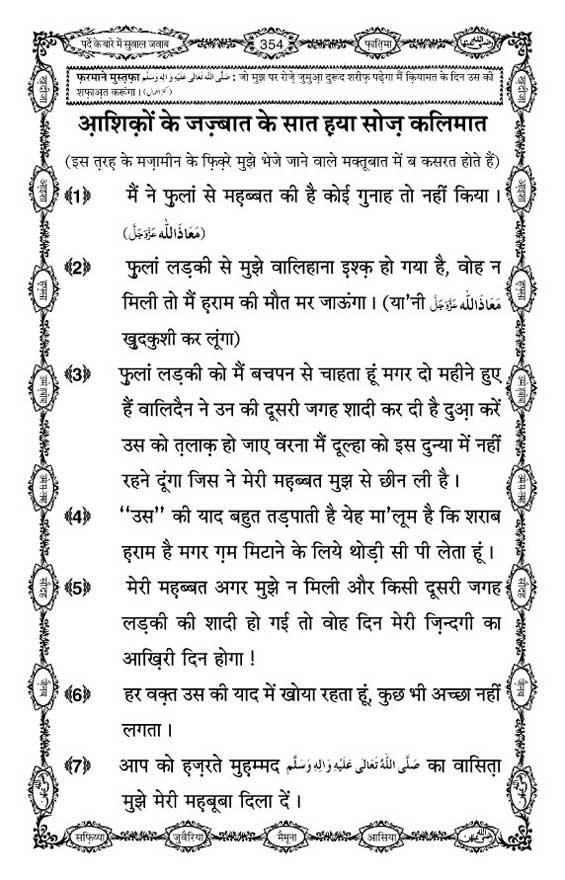 पर्दे के बारे में सुवाल जवाब
354
फ़ातिमा
फ़रमाने मुस्तफ़ा صَلَّى اللهُ تَعَالٰى عَلَيْهِ وَاٰلِهٖ وَسَلَّم : जो मुझ पर रोज़े जुमुआ़ दुरूद शरीफ़ पढ़ेगा मैं क़ियामत के दिन उस की
शफ़ाअ़त करूंगा।
आ़शिक़ों के जज़्बात के सात ह़या सोज़ कलिमात
(इस त़रह़ के मज़ामीन के फ़िक़्रे मुझे भेजे जाने वाले मक्तूबात में ब कसरत होते हैं)
﴾1﴿ मैं ने फ़ुलां से महब्बत की है कोई गुनाह तो नहीं किया ।
(مَعَاذَاللّٰه عَزَّوَجَلَّ)
﴾2﴿ फ़ुलां लड़की से मुझे वालिहाना इश्क़ हो गया है, वोह न
मिली तो मैं ह़राम की मौत मर जाऊंगा । (या'नी مَعَاذَاللّٰه عَزَّوَجَلَّ
ख़ुदकुशी कर लूंगा)
﴾3﴿ फ़ुलां लड़की को मैं बचपन से चाहता हूं मगर दो महीने हुए
हैं वालिदैन ने उन की दूसरी जगह शादी कर दी है दुआ़ करें
उस को त़लाक़ हो जाए वरना मैं दूल्हा को इस दुन्या में नहीं
रहने दूंगा जिस ने मेरी महब्बत मुझ से छीन ली है ।
﴾4﴿ ‘‘उस’’ की याद बहुत तड़पाती है येह मा'लूम है कि शराब
ह़राम है मगर ग़म मिटाने के लिये थोड़ी सी पी लेता हूं ।
﴾5﴿ मेरी महब्बत अगर मुझे न मिली और किसी दूसरी जगह
लड़की की शादी हो गई तो वोह दिन मेरी ज़िन्दगी का
आख़िरी दिन होगा !
﴾6﴿ हर वक़्त उस की याद में खोया रहता हूं, कुछ भी अच्छा नहीं
लगता ।
﴾7﴿ आप को ह़ज़रते मुह़म्मद صَلَّى اللهُ تَعَالٰى عَلَيْهِ وَاٰلِهٖ وَسَلَّم का वासित़ा
मुझे मेरी मह़बूबा दिला दें ।
सफ़िय्या
जुवैरिया
मैमूना
आसिया